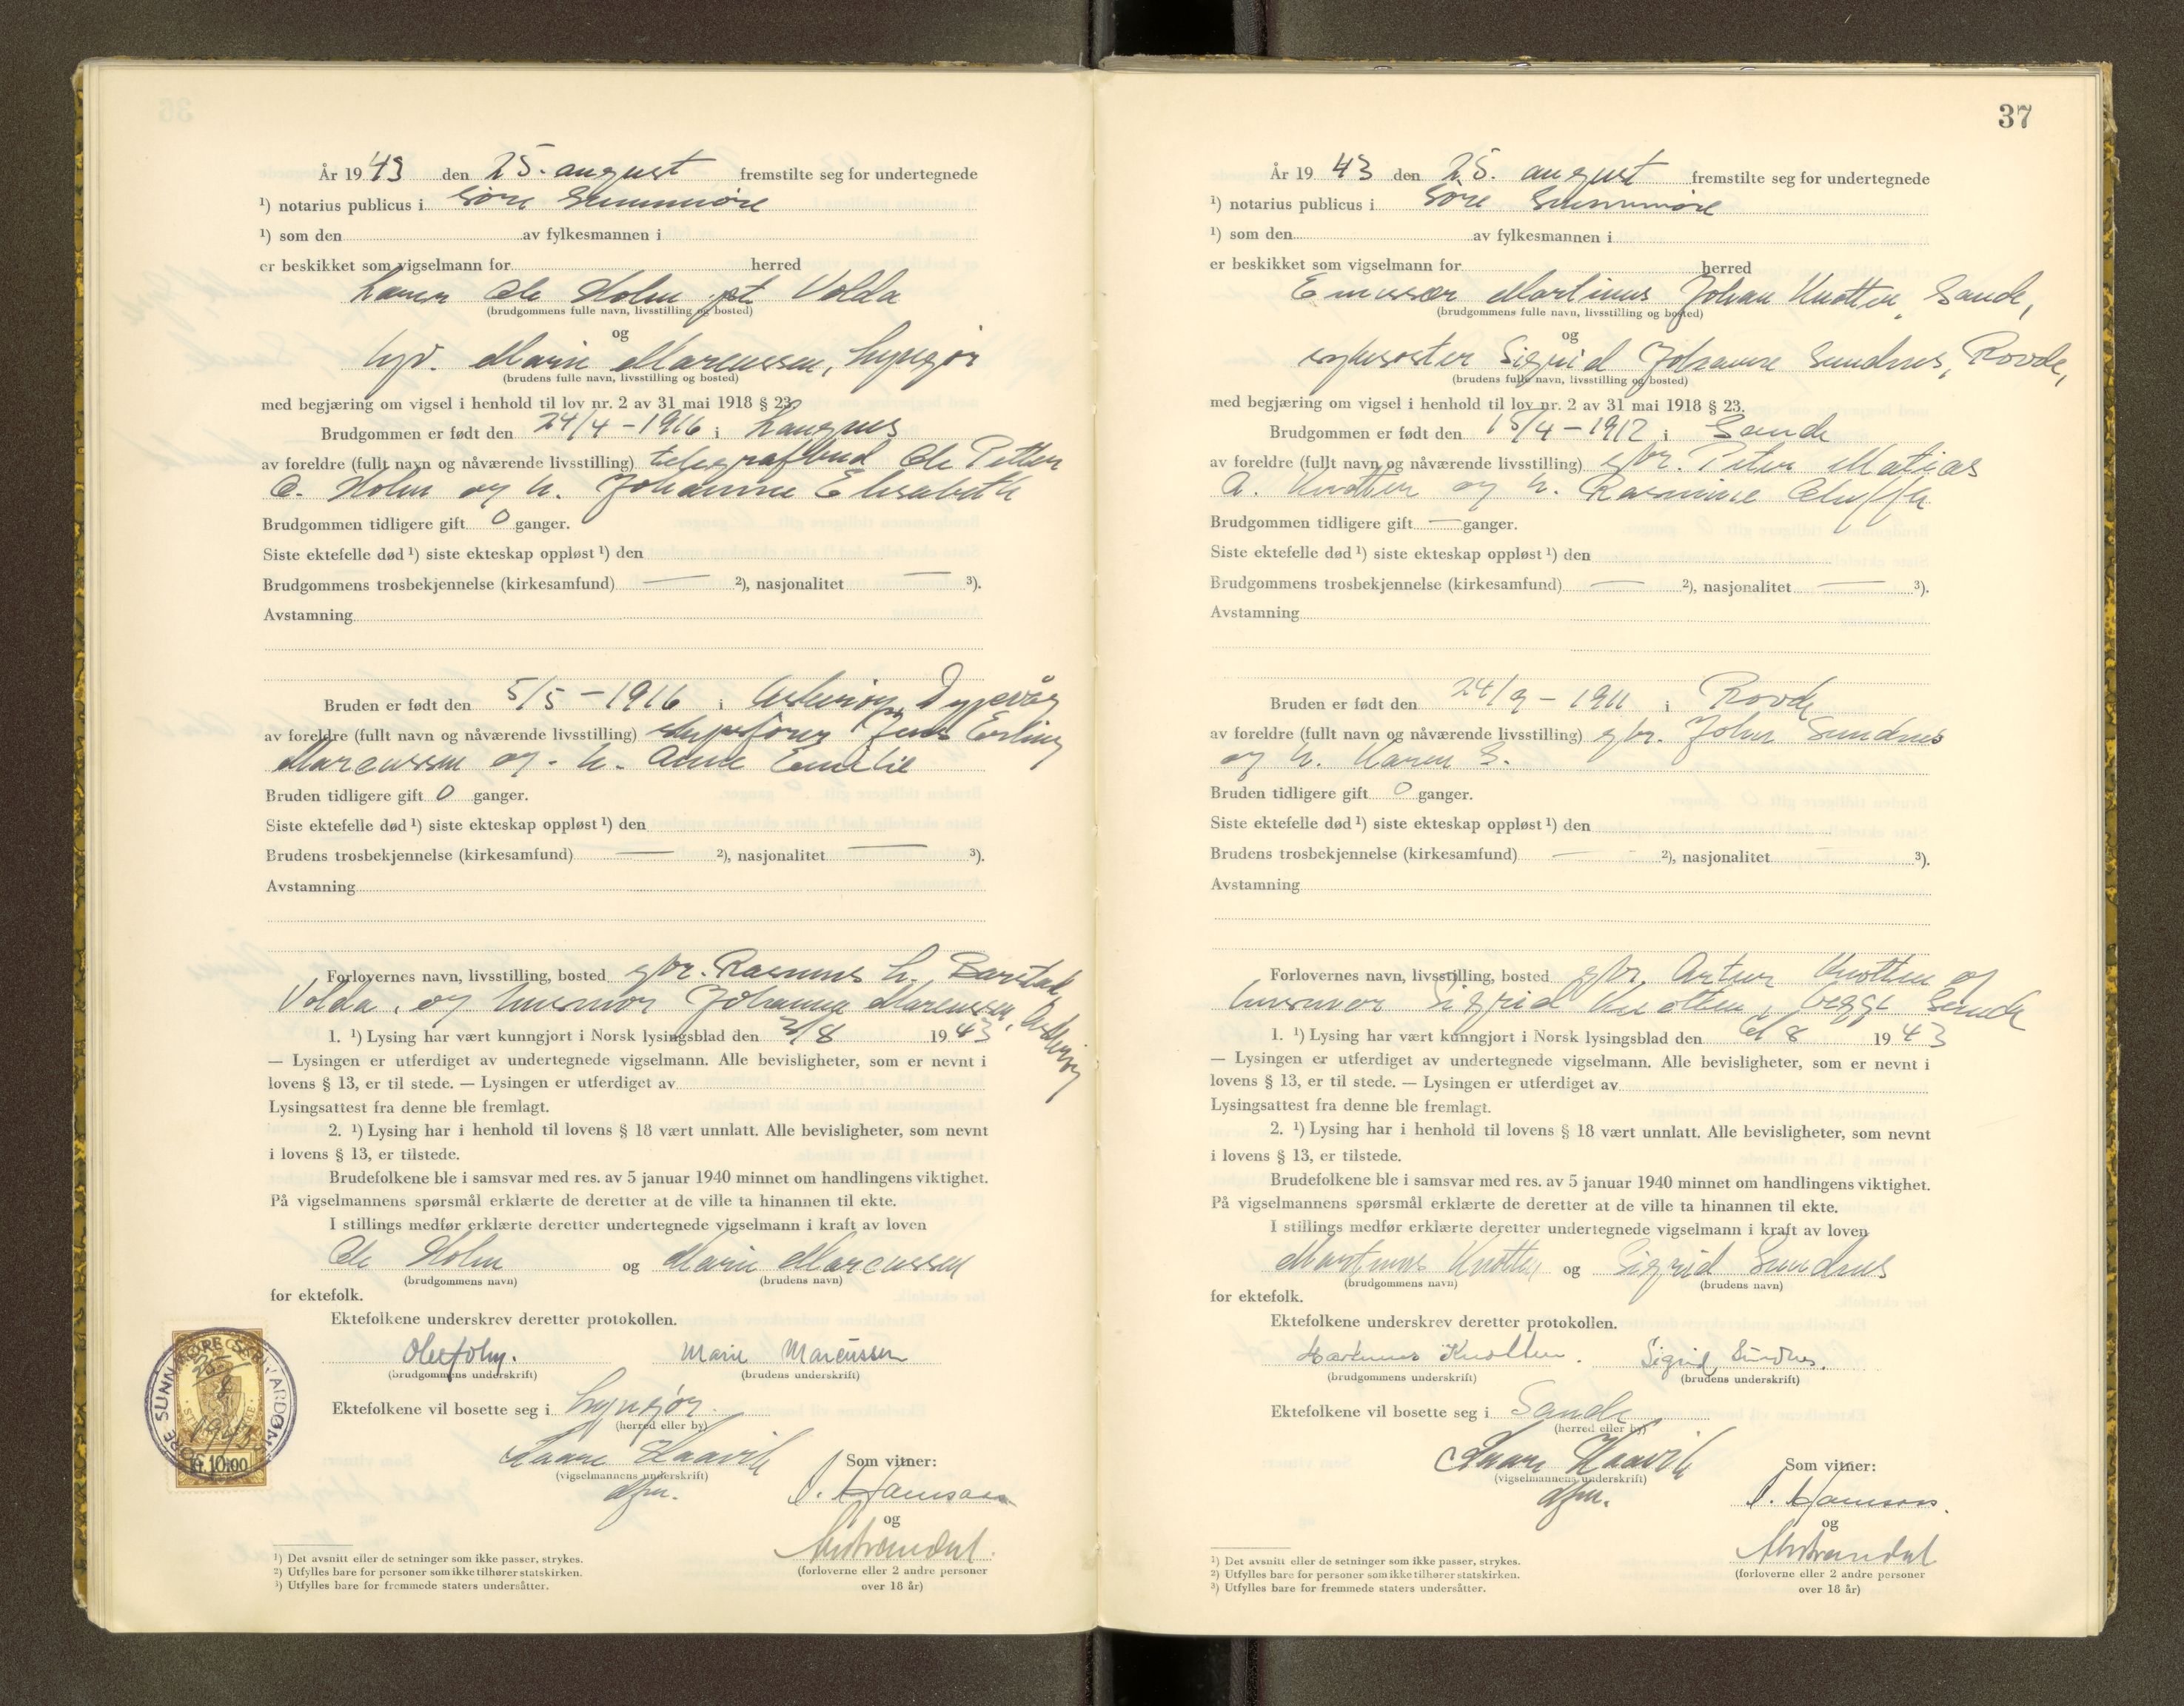 År 1943 den 25. august fremstilte seg for undertegnede
¹) notarius publicus i Søre Sunnmøre
¹) som den av fylkesmannen i
er beskikket som vigselmann for herred
Lærer Ole Holm pt. Volda
(brudgommens fulle navn, livsstilling og bosted)
og
Marie Marcussen, Lyngør
(brudens fulle navn, livsstilling og bosted)
med begjæring om vigsel i henhold til lov nr. 2 av 31 mai 1918 § 23.
Brudgommen er født den 24/4 - 1916 i Langnes
av foreldre (fullt navn og nåværende livsstilling) telegrafbud Ole Petter
C. Holm og h. Johanne Elisabeth
Brudgommen tidligere gift 0 ganger.
Siste ektefelle død ¹) siste ekteskap oppløst ¹) den
Brudgommens trosbekjennelse (kirkesamfund) — ²), nasjonalitet — ³).
Avstamning
Bruden er født den 5/5 - 1916 i Askerøy, Dypevåg
av foreldre (fullt navn og nåværende livsstilling) skipsfører Jens Erling
Marcussen og h. Anne Emelie
Bruden tidligere gift 0 ganger.
Siste ektefelle død ¹) siste ekteskap oppløst ¹) den
Brudens trosbekjennelse (kirkesamfund) — ²), nasjonalitet — ³).
Avstamning
Forlovernes navn, livsstilling, bosted gbr. Rasmus L. Barstad,
Volda, og husmor Johanna Marcussen, Askerøy
1. ¹) Lysing har vært kunngjort i Norsk lysingsblad den 2/8 1943
— Lysingen er utferdiget av undertegnede vigselmann. Alle bevisligheter, som er nevnt i
lovens § 13, er til stede. — Lysingen er utferdiget av
Lysingsattest fra denne ble fremlagt.
2. ¹) Lysing har i henhold til lovens § 18 vært unnlatt. Alle bevisligheter, som nevnt
i lovens § 13, er tilstede.
Brudefolkene ble i samsvar med res. av 5 januar 1940 minnet om handlingens viktighet.
På vigselmannens spørsmål erklærte de deretter at de ville ta hinannen til ekte.
I stillings medfør erklærte deretter undertegnede vigselmann i kraft av loven
Ole Holm og Marie Marcussen
(brudgommens navn) (brudens navn)
for ektefolk.
Ektefolkene underskrev deretter protokollen.
Ole Holm. Marie Marcussen
(brudgommens underskrift) (brudens underskrift)
Ektefolkene vil bosette seg i Lyngør.
(herred eller by)
Kaare Haavik
(vigselmannens underskrift)
dfm.
Som vitner:
og
(forloverne eller 2 andre personer
over 18 år)
SØRE SUNNMØRE SORENSKRIVARDØMME
25/8
1943
Kr. 10.00
¹) Det avsnitt eller de setninger som ikke passer, strykes.
²) Utfylles bare for personer som ikke tilhører statskirken.
³) Utfylles bare for fremmede staters undersåtter.
37
År 1943 den 25. august fremstilte seg for undertegnede
¹) notarius publicus i Søre Sunnmøre
¹) som den av fylkesmannen i
er beskikket som vigselmann for herred
Emissær Martinus Johan Knotten, Sande,
(brudgommens fulle navn, livsstilling og bosted)
og
sykesøster Sigrid Johanne Sundnes, Rovde,
(brudens fulle navn, livsstilling og bosted)
med begjæring om vigsel i henhold til lov nr. 2 av 31 mai 1918 § 23.
Brudgommen er født den 15/4 - 1912 i Sande
av foreldre (fullt navn og nåværende livsstilling) gbr. Peter Matias
A. Knotten og h. Rasmine
Brudgommen tidligere gift — ganger.
Siste ektefelle død ¹) siste ekteskap oppløst ¹) den
Brudgommens trosbekjennelse (kirkesamfund) — ²), nasjonalitet — ³).
Avstamning
Bruden er født den 24/9 - 1911 i Rovde
av foreldre (fullt navn og nåværende livsstilling) gbr. Johan Sundnes
og h. Karen S.
Bruden tidligere gift 0 ganger.
Siste ektefelle død ¹) siste ekteskap oppløst ¹) den
Brudens trosbekjennelse (kirkesamfund) — ²), nasjonalitet ³).
Avstamning
Forlovernes navn, livsstilling, bosted gbr. Artur Knotten og
husmor Sigrid Knotten, begge Sande
1. ¹) Lysing har vært kunngjort i Norsk lysingsblad den 8 1943
— Lysingen er utferdiget av undertegnede vigselmann. Alle bevisligheter, som er nevnt i
lovens § 13, er til stede. — Lysingen er utferdiget av
Lysingsattest fra denne ble fremlagt.
2. ¹) Lysing har i henhold til lovens § 18 vært unnlatt. Alle bevisligheter, som nevnt
i lovens § 13, er tilstede.
Brudefolkene ble i samsvar med res. av 5 januar 1940 minnet om handlingens viktighet.
På vigselmannens spørsmål erklærte de deretter at de ville ta hinannen til ekte.
I stillings medfør erklærte deretter undertegnede vigselmann i kraft av loven
Martinus Knotten og Sigrid Sundnes
(brudgommens navn) (brudens navn)
for ektefolk.
Ektefolkene underskrev deretter protokollen.
Martinus Knotten. Sigrid Sundnes.
(brudgommens underskrift) (brudens underskrift)
Ektefolkene vil bosette seg i Sande
(herred eller by)
Kaare Haavik
(vigselmannens underskrift)
dfm.
Som vitner:
og
(forloverne eller 2 andre personer
over 18 år)
¹) Det avsnitt eller de setninger som ikke passer, strykes.
²) Utfylles bare for personer som ikke tilhører statskirken.
³) Utfylles bare for fremmede staters undersåtter.